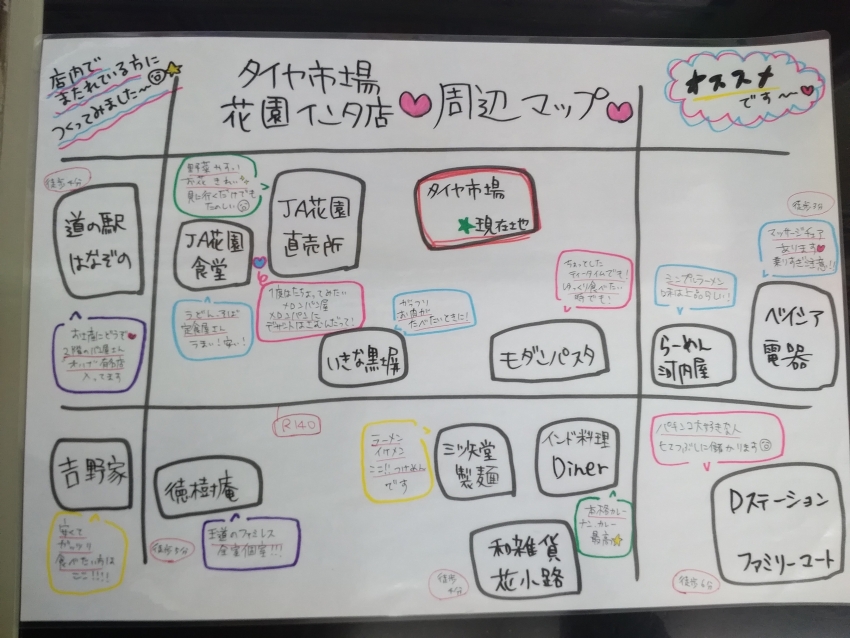 店内で
またれている方に
つくってみました〜
タイヤ市場
花園インタ店
周辺マップ
オススメ
です〜
徒歩4分
道の駅
はなぞの
野菜やすい
お花 きれい
見に行くだけでも
たのしい
JA花園
直売所
JA花園
食堂
タイヤ市場
現在地
徒歩3分
マッサージチェア
あります
乗りすぎ注意!!
ベイシア
電器
シンプルラーメン
味は上品らしい!
らーめん
河内屋
ちょっとした
ティータイムでも!
ゆっくり食べたい
時でも!
モダンパスタ
ガッツリ
お肉が
たべたいときに!
いきな黒塀
1度はたちよってみたい
メロンパン屋
メロンパンに
デザートはさむんだって!
うどん、そば
定食屋さん
うまい!安い!
お土産にどうぞ
2階のパン屋さん
入ってます
R140
吉野家
安くて
ガッツリ
食べたい方は
ここ!!!!
徳樹庵
徒歩5分
王道のファミレス
全室個室!!!
ラーメン
イケメン
ここ!!つけめん
です
三ツ矢堂
製麺
インド料理
Diner
本格カレー
ナン カレー
最高
和雑貨
花小路
徒歩
4分
パチンコ大好きな人
ヒマつぶしに儲かります
Dステーション
ファミリーマート
徒歩6分